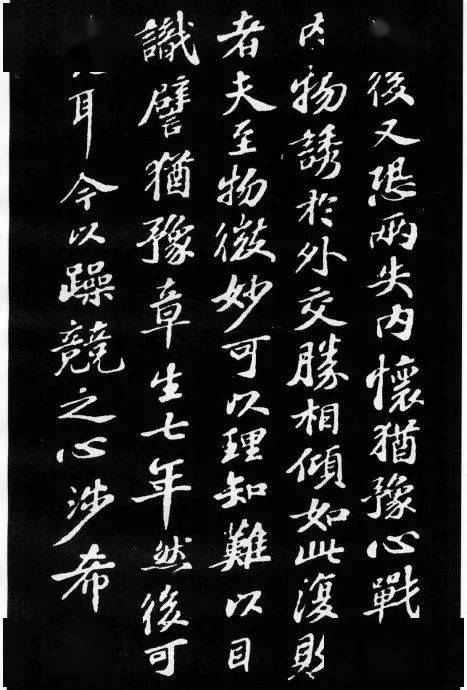 後又恐兩失内懷猶豫心戰
内物誘於外交勝相傾如此復
者夫至物微妙可以理知難以目
識譬猶豫章生七年然後可
耳今以躁競之心涉希